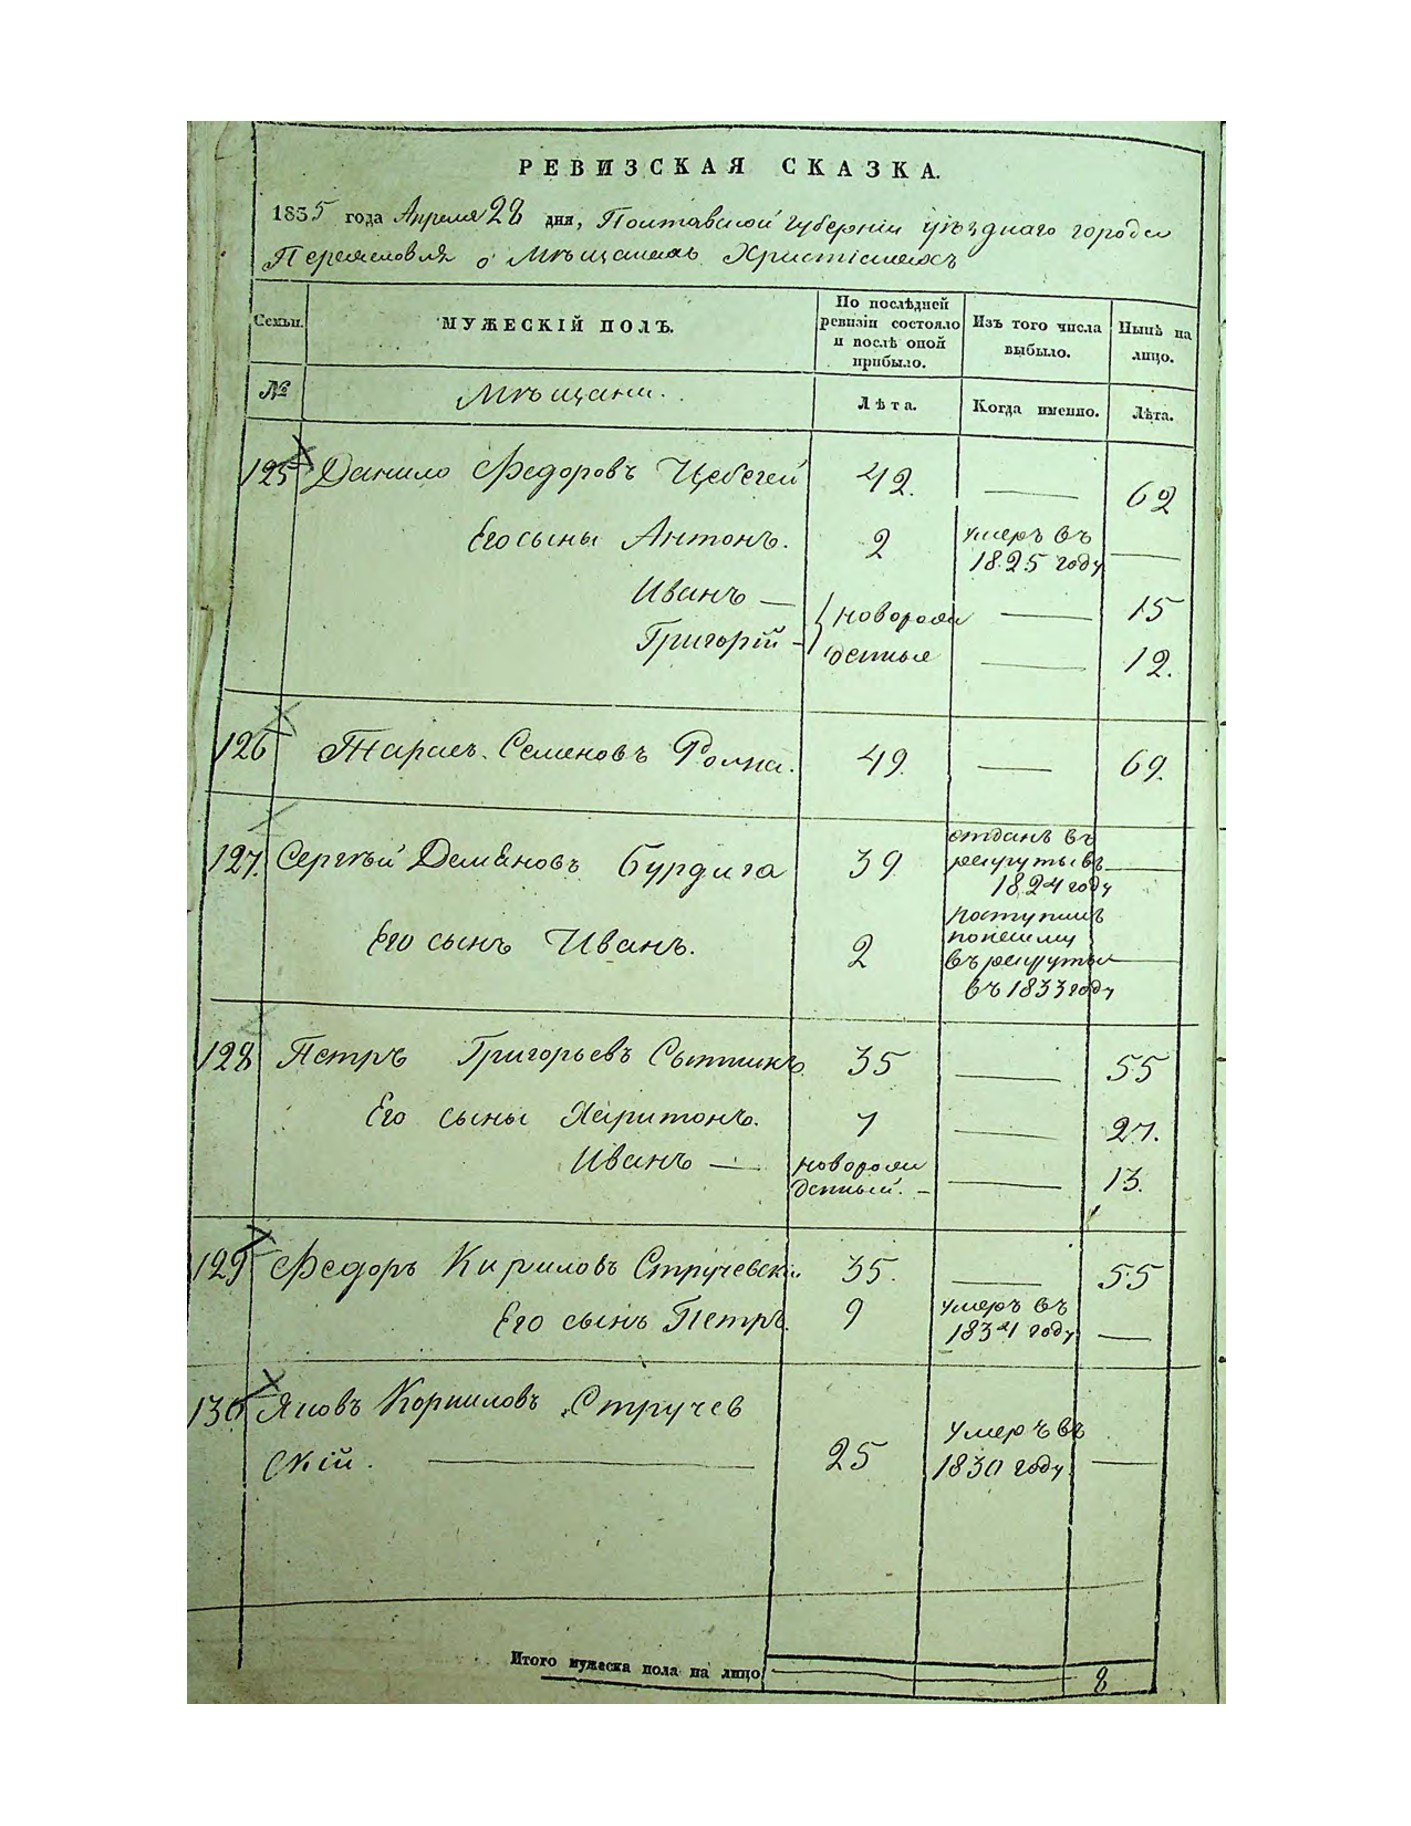 РЕВИЗСКАЯ СКАЗКА.
1835 года Апреля 28 дня, Полтавской губернии уѣзднаго города
Переяславля о Мѣщанахъ Христіанахъ
Семьи.
МУЖЕСКІЙ ПОЛЪ.
По послѣдней
ревизіи состояло
и послѣ оной
прибыло.
Изъ того числа
выбыло.
Нынѣ на
лицо.
№
Мѣщани.
Лѣта.
Когда именно.
Лѣта.
125 Данило Федоровъ 42. — 62
Его сыны Антонъ. 2 умеръ въ
1825 году —
Иванъ — новорож — 15
Григорій - денные — 12.
126 Тарасъ Семеновъ 49. — 69.
127. Сергѣй Демяновъ Бурдига 39. отданъ въ
рекруты въ —
1824 году
Его сынъ Иванъ. 2 поступилъ
въ рекруты —
въ 1833 году
128 Петръ Григорьевъ 35 — 55
Его сыны Харитонъ. 7 — 27.
Иванъ — новорож
денный. - — 13.
129 Федоръ Кириловъ Стручевскі 35. — 55
Его сынъ Петръ. 9 умеръ въ
1834 году —
130 Яковъ Корниловъ Стручев
скій. — 25 умеръ въ
1830 году —
Итого мужеска пола на лицо — 8